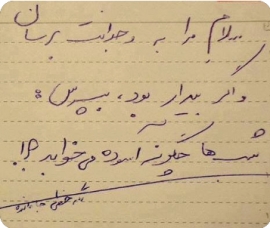 سلام مرا به وجدانت برسان
و اگر بیدار بود، بپرس:
شب‌ها چگونه آسوده می‌خوابد؟!